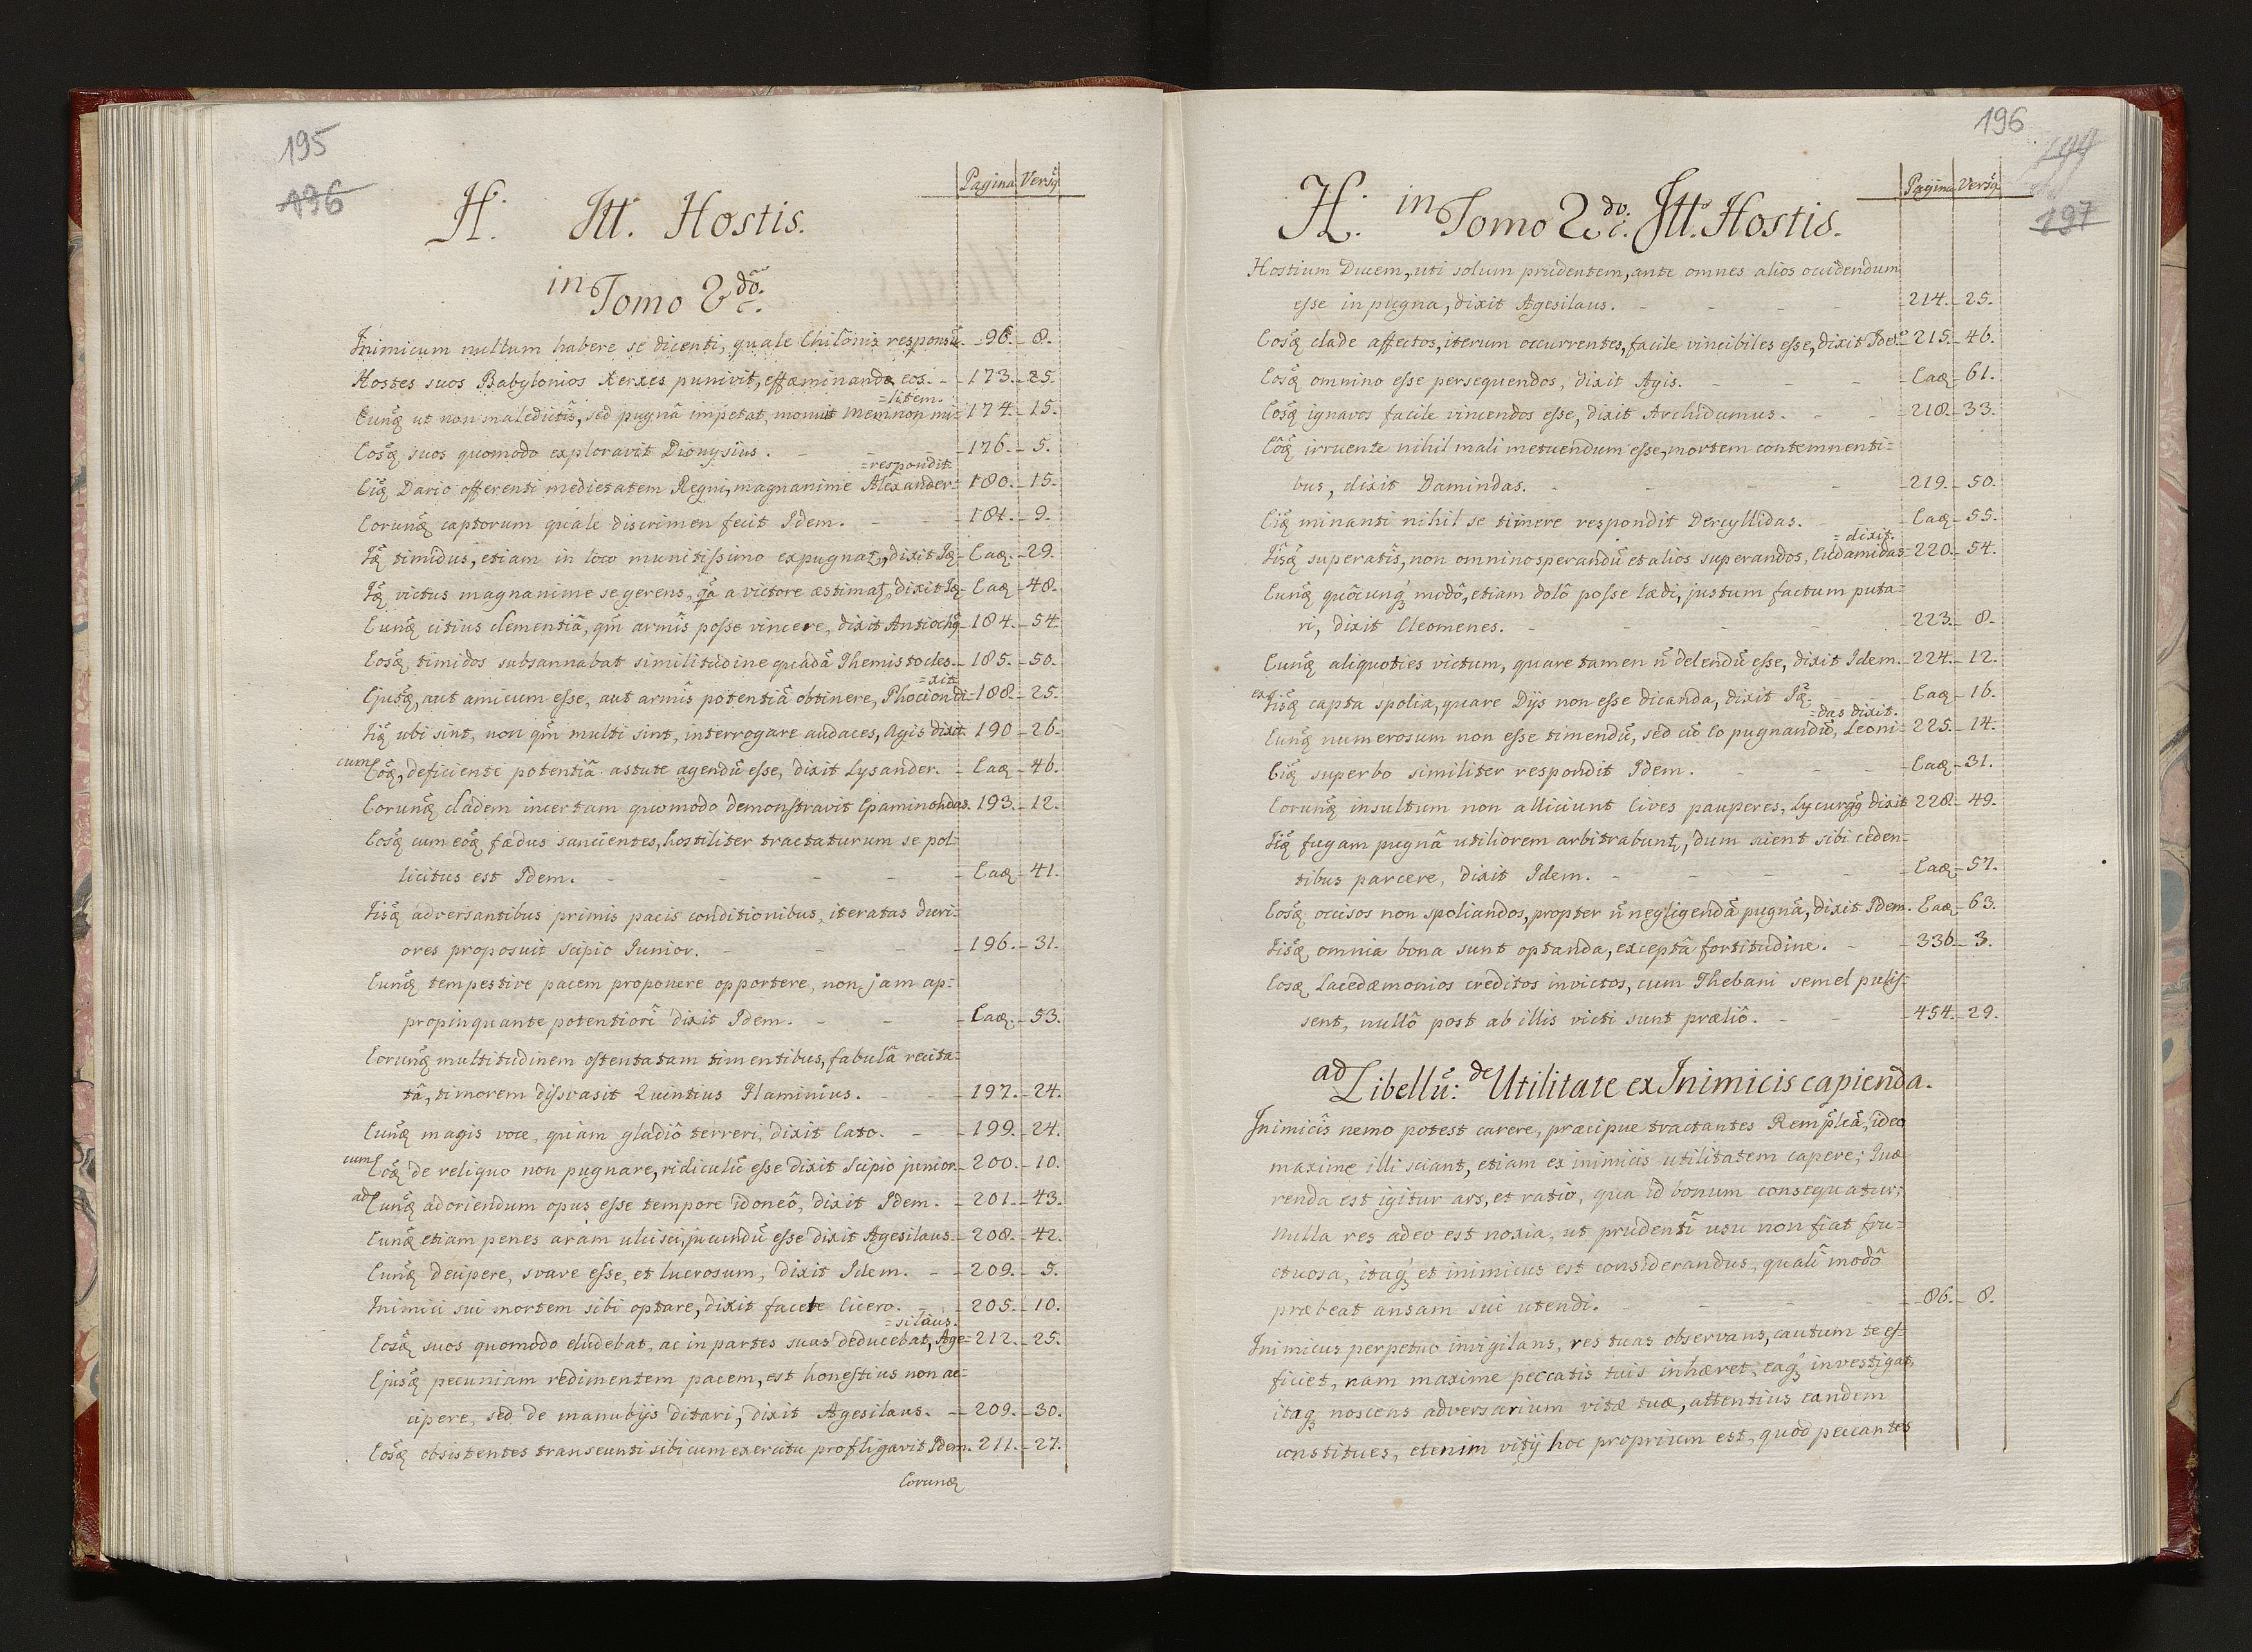 195
196
Pagina Versq
H. Itt. Hostis.
in Tomo 2do.
Inimicum nullum habere se dicenti, quale Chilonis responsũ. - 96. - 8.
Hostes suos Babylonios Xerxes punivit, effæminando eos. - 173. - 25.
=litem.
Eunq ut non maledictîs, sed pugnâ impetat, monuit Memnon mi= 174. - 15.
Eosq suos quomodo exploravit Dionysius. - 176. - 5.
=respondit.
Eiq Dario offerenti medietatem Regni, magnanime Alexander= 180. - 15.
Eorunq captorum quale discrimen fecit Idem. - 181. - 9.
Iq timidus, etiam in loco munitissimo expugnat, dixit Iq - Eaq. - 29.
Iq victus magnanime se gerens, qa a victore æstimat, dixit Iq - Eaq - 48.
Eunq citius clementiâ, qm armîs posse vincere, dixit Antiochq - 184. - 54.
Eosq timidos subsannabat similitudine quadã Themistocles. - 185. - 50.
=xit
Ejusq, aut amicum esse, aut armîs potentiâ obtinere, Phocion di= 188. - 25.
Iiq ubi sint, non qm multi sint, interrogare audaces, Agis dixit. 190 - 26.
cum Eôq, deficiente potentiâ astute agendũ esse, dixit Lysander. - Eaq - 46.
Eorunq cladem incertam quomodo demonstravit Epaminondas. 193. - 12.
Eosq cum eôq fædus sancientes, hostiliter tractaturum se pol=
licitus est Idem. - Eaq - 41.
Iisq adversantibus primis pacis conditionibus, iteratas duri=
ores proposuit Scipio Junior. - 196. - 31.
Eunq tempestive pacem proponere opportere, non jam ap=
propinquante potentiori dixit Idem. - Eaq. - 53.
Eorunq multitudinem ostentatam timentibus, fabulâ recita=
tâ, timorem dissvasit Quintius Flaminius. - 197. - 24.
Eunq magis voce, quam gladiô terreri, dixit Cato. - 199. - 24.
cum Eôq de reliquo non pugnare, ridiculũ esse dixit Scipio junior. - 200. - 10.
ad Eunq adoriendum opus esse tempore idoneô, dixit Idem. - 201. - 43.
Eunq etiam penes aram ulcisci, jucundũ esse dixit Agesilaus. - 208. - 42.
Eunq decipere, svave esse, et lucrosum, dixit Idem. - 209. - 5.
Inimici sui mortem sibi optare, dixit facete Cicero. - 205. - 10.
=silaus.
Eosq suos quomodo eludebat, ac in partes suas deducebat, Age= 212. - 25.
Ejusq pecuniam redimentem pacem, est honestius non ac=
cipere, sed de manubijs ditari, dixit Agesilaus. - 209. - 30.
Eosq obsistentes transeunti sibi cum exercitu profligavit Idem. 211. - 27.
Eorunq
196
197
Pagina Versq
H. in Tomo 2do. Itt. Hostis.
Hostium Ducem, uti solum prudentem, ante omnes alios occidendum
esse in pugna, dixit Agesilaus. - 214. - 25.
Eosq clade affectos, iterum occurrentes, facile vincibiles esse, dixit Idẽ. 215. - 46.
Eosq omnino esse persequendos, dixit Agis. - Eaq - 61.
Eosq ignavos facile vincendos esse, dixit Archidamus. - 218. - 33.
Eôq irruente nihil mali metuendum esse, mortem contemnenti=
bus, dixit Damindas. - 219. - 50.
Eiq minanti nihil se timere respondit Dercyllidas. - Eaq - 55.
=dixit.
Iisq superatîs, non omnino sperandũ et alios superandos, Eudamidas= 220. - 54.
Eunq quôcunq modô, etiam dolô posse lædi, justum factum puta=
ri, dixit Cleomenes. - 223. - 8.
Eunq aliquoties victum, quare tamen ñ delendũ esse, dixit Idem. 224. - 12.
ex Iisq capta spolia, quare Dijs non esse dicanda, dixit Iq. - Eaq - 16.
=das dixit.
Eunq numerosum non esse timendũ, sed cũ Eo pugnandũ, Leoni= 225. - 14.
Eiq superbo similiter respondit Idem. - Eaq - 31.
Eorunq insultum non alliciunt Cives pauperes, Lycurgq dixit 228. - 49.
Iiq fugam pugnâ utiliorem arbitrabunt, dum scient sibi ceden=
tibus parcere, dixit Idem. - Eaq - 57.
Eosq occisos non spoliandos, propter ñ negligendâ pugnâ, dixit Idem. Eaq - 63.
Iisq omnia bona sunt optanda, exceptâ fortitudine. - 336 - 3.
Eosq Lacedæmonios creditos invictos, cum Thebani semel pulis=
sent, nullô post ab illis victi sunt præliô. - 454. - 29.
ad Libellũ: de Utilitate ex Inimicis capienda.
Inimicîs nemo potest carere, præcipue tractantes Remplcã, ideo
maxime illi sciant, etiam ex inimicis utilitatem capere; Quæ
renda est igitur ars, et ratio, qua id bonum consequatur;
Nulla res adeo est noxia, ut prudenti usu non fiat fru=
ctuosa, itaq et inimicus est considerandus, quali modô
præbeat ansam sui utendi. - 86. - 8.
Inimicus perpetuo invigilans, res tuas observans, cautum te ef=
ficiet, nam maxime peccatis tuis inhæret, eaq investigat,
itaq noscens adversarium vitæ tuæ, attentius eandem
constitues, etenim vitij hoc proprium est, quod peccantes